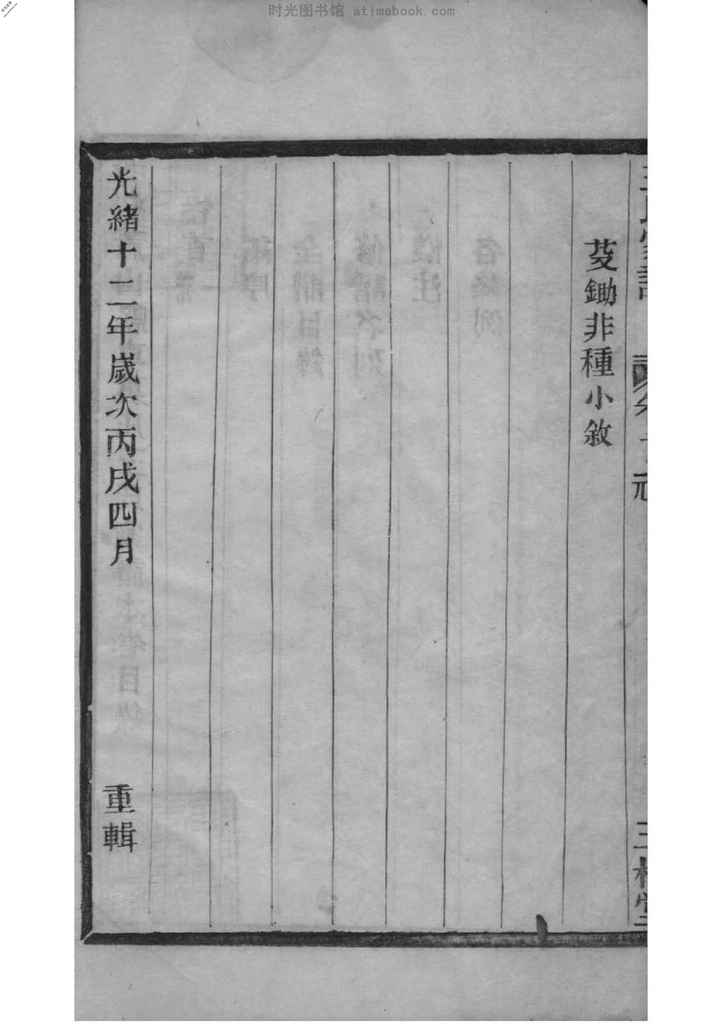 时光图书馆 atimebook.com
芟鋤非種小敘
三槐堂
光緒十二年歲次丙戌四月 重輯